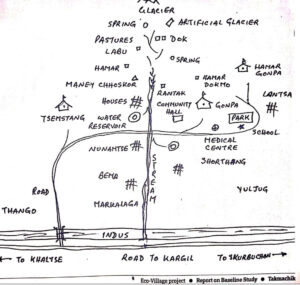 GLACIER
SPRING
ARTIFICIAL GLACIER
PASTURES
DOK
LABU
SPRING
HAMAR
HAMAR GONPA
MANEY CHHOSKOR
HAMAR DOKMO
RANTAK
LANTSA
HOUSES
COMMUNITY HALL
GONPA
TSEMSTANG
WATER RESERVOIR
PARK
SCHOOL
MEDICAL CENTRE
NUNAMTSE
STREAM
SHORTHANG
BEMA
ROAD
MARHALAGA
YULJUG
THANGO
INDUS
← TO KHALTSE
ROAD TO KARGIL
TO SKURBUCHAN →
Eco-Village project ● Report on Baseline Study ● Takmachik